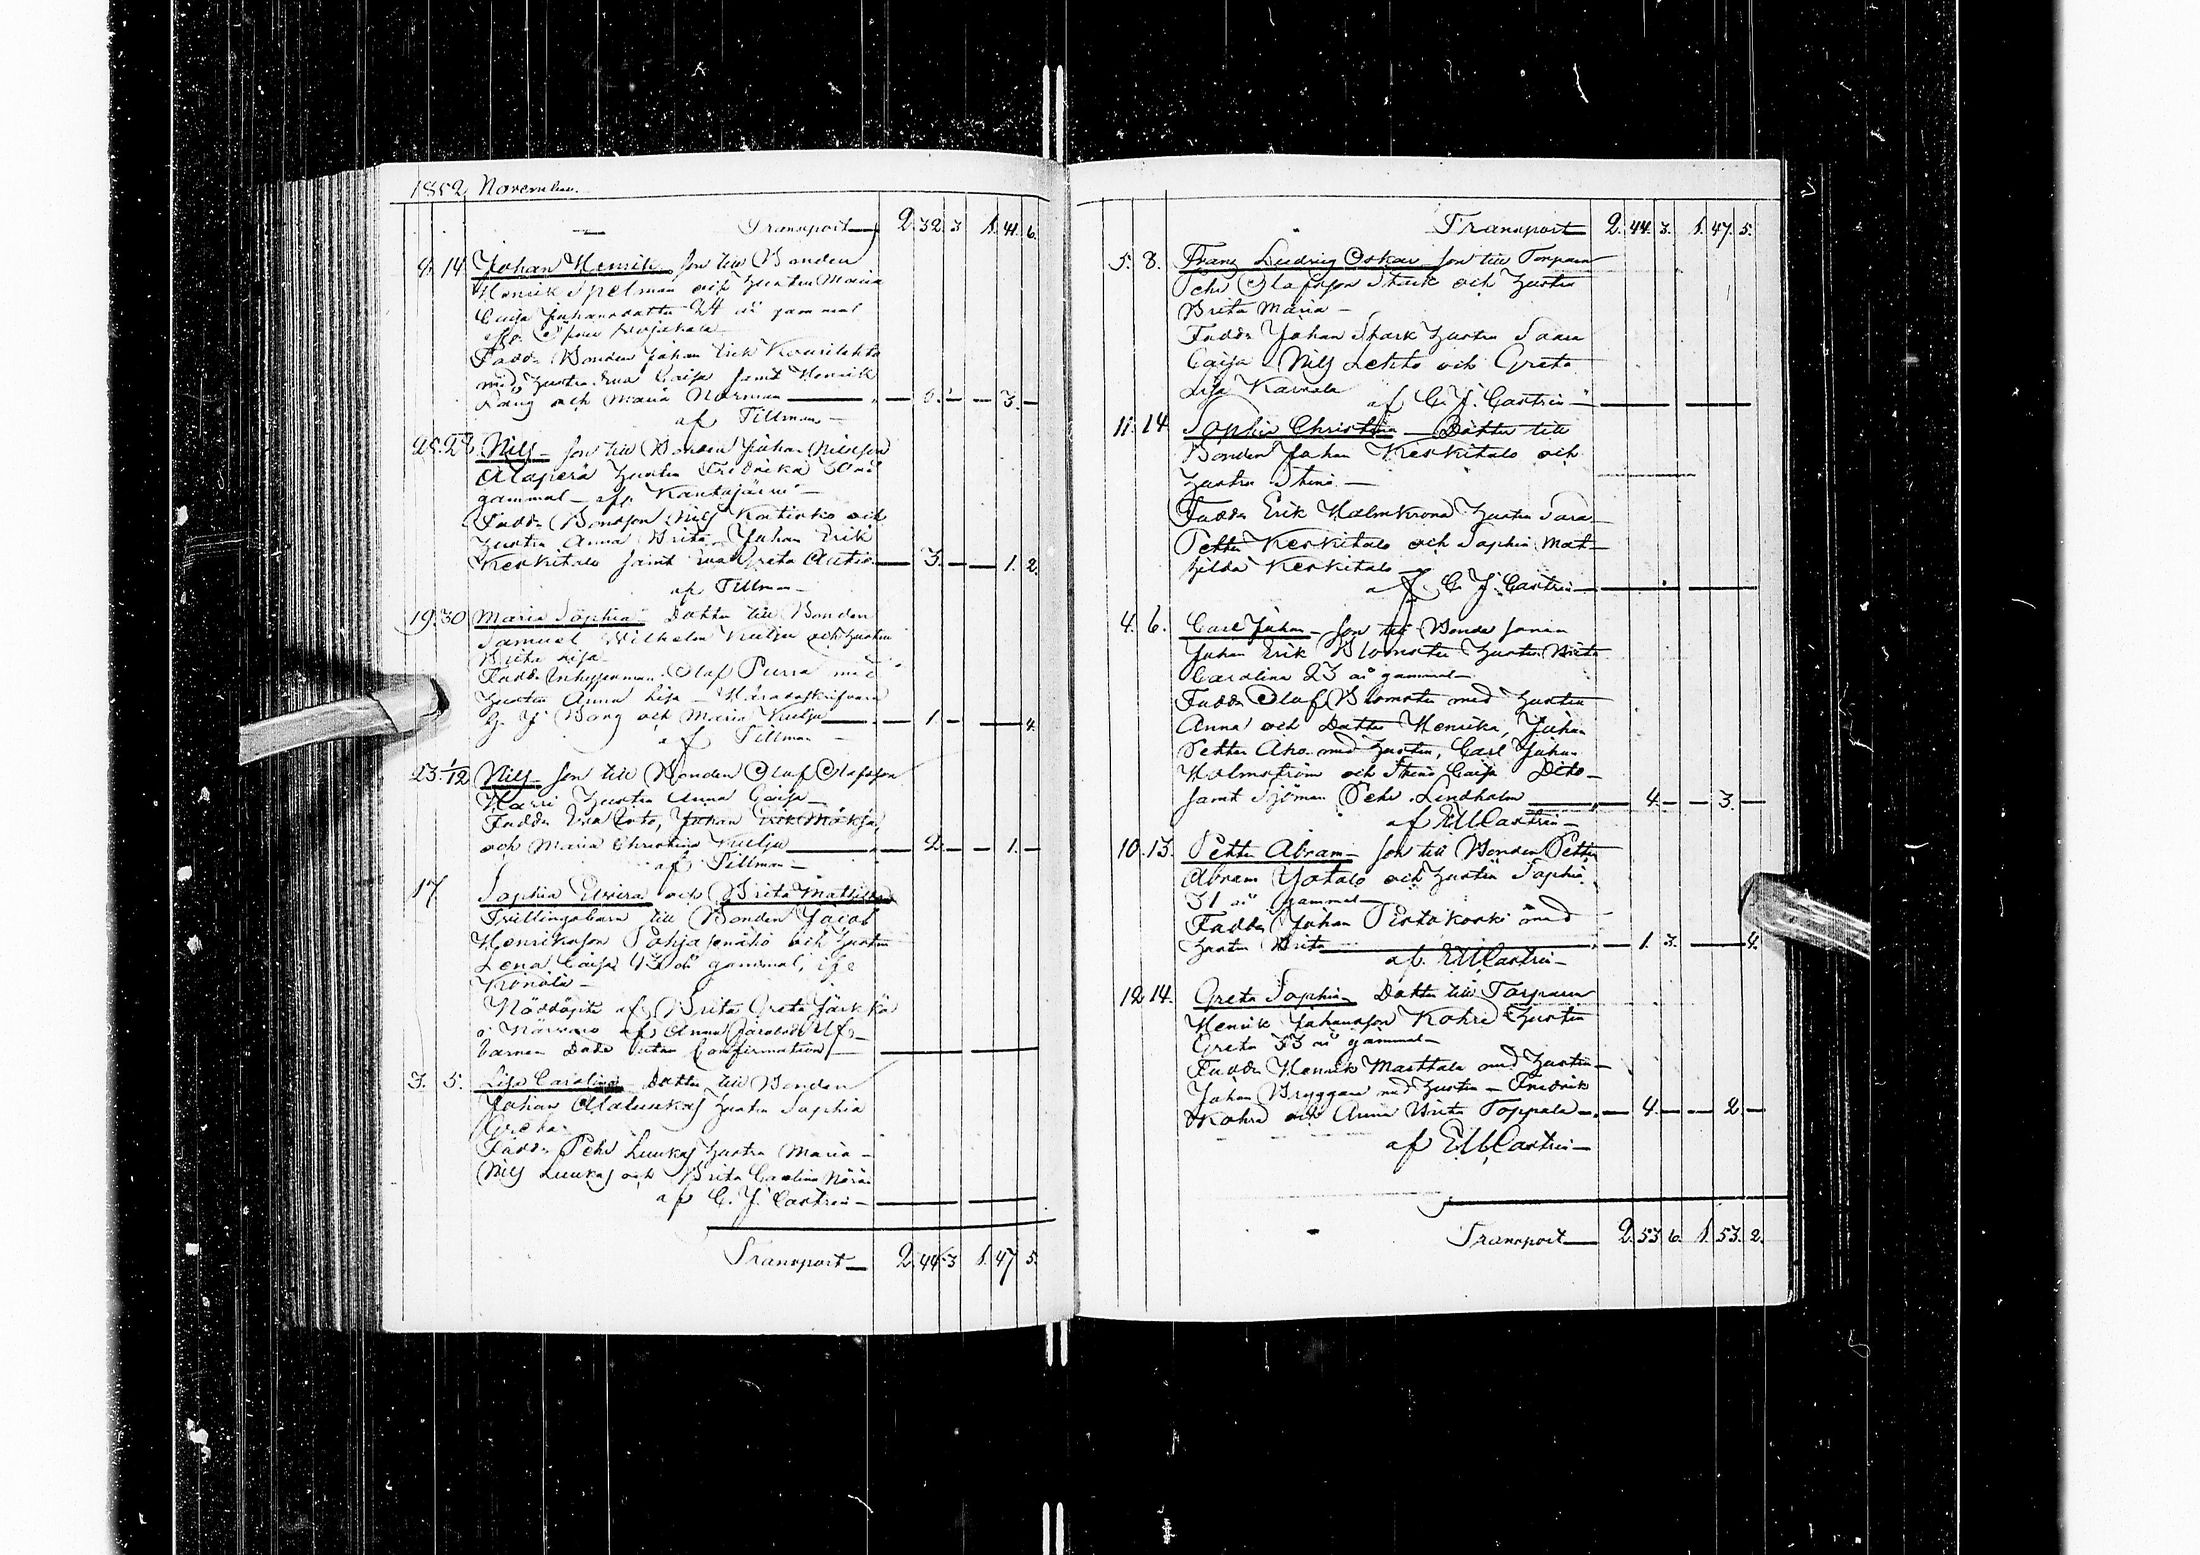 1852 November.
Transport 2. 32. 3 1. 41. 6.
8. 14 Johan Henrik son till Bonden
Henrik Spelman och hustru Maria
Caisa Johansdotter 24 år gammal
Fadd: Bonden Johan Erik Kourilehto
med hustru Eva Caisa samt Henrik
Lång och Maria Norman 3.
af Tillman
25. 28. Nils son till Bonden Johan Nilsson
Alaperä hustru Fredrika
gammal Kantojärvi
Fadd: Bondson Nils Katisko och
hustru Anna Brita Johan Erik
Keskitalo samt Eva Greta Autio 3. 1. 2.
af Tillman
19. 30 Maria Sophia Dotter till Bonden
Samuel Wilhelm Kulju och hustru
Brita Lisa
Fadd: Inhysesman Olof Purra med
hustru Anna Lisa Häradsskrifvare
Bong och Maria Kulju 1. 4.
af Tillman
23. 1/12 Nils son till Bonden Olof Olofsson
Harri hustru Anna Caisa
Fadder Eva Joto, Johan Erik
och Maria Christina Kulju 2. 1.
af Tillman
17 Sophia Elvira och Brita Mathilda
Tvillingsbarn till Bonden Jacob
Henriksson Pohja och hustru
Lena Caisa 43 år gammal,
Könölä
Nöddöpte af Brita Greta
Närvaro af Anna
barnen döda utan Confirmation
3. 5. Lisa Carolina Dotter till Bonden
Johan Alaluukas hustru Sophia
Greta
Fadd: Pehr Luukas hustru Maria
Nils Luukas och Brita Carolina
af C. J. Castrén
Transport 2. 44. 3 1. 47 5.
Transport 2. 44. 3. 1. 47. 5.
5. 8. Franz Ludvig Oskar son till Torparen
Pehr Olofsson Stark och hustru
Brita Maria
Fadde Johan Stark hustru Saara
Caisa Nils Lehto och Greta
Lisa
af C. J. Castrén
11. 14 Sophia Christina Dotter till
Bonden Johan Keskitalo och
hustru Stina
Fadde Erik Malmkrona hustru Sara
Petter Keskitalo och Sophia Mat-
hilda Keskitalo
af C. J. Castrén
4. 6. Carl Johan son till Bonde sonen
Johan Erik Blomster hustru Brita
Carolina 23 år gammal
Fadde Olof Blomster med hustru
Anna och Dotter Henrika, Johan
Petter Aho med hustru, Carl Johan
Holmström och Stina Caisa Dito
samt Sjöman Pehr Lindholm 4. 3.
af E M Castrén
10. 13. Petter Abram son till Bonden Petter
Abram Yotalo och hustru Sophia
31 år gammal
Fadde Johan Pirtikoski med
hustru Brita 1. 3. 4.
af E M Castrén
12 14. Greta Sophia Dotter till Torparen
Henrik Johansson Kohre hustru
Greta 33 år gammal
Fadde Henrik Marttala med hustru
Johan Bryggare med hustru Fredrik
Kohre och Anna Brita Toppala 4. 2
af E M Castrén
Transport 2. 53. 6. 1. 53. 2.